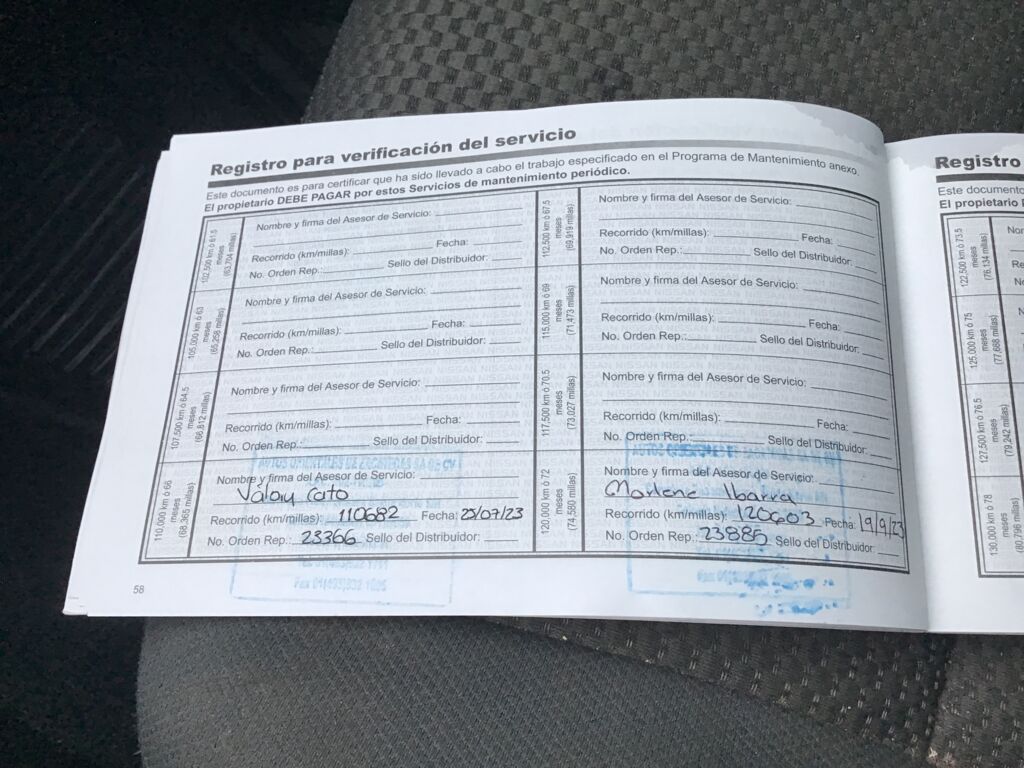 Registro para verificación del servicio
Este documento es para certificar que ha sido llevado a cabo el trabajo especificado en el Programa de Mantenimiento anexo.
El propietario DEBE PAGAR por estos Servicios de mantenimiento periódico.
102,500 km ó 61.5
meses
(63,704 millas)
Nombre y firma del Asesor de Servicio:
Recorrido (km/millas): Fecha:
No. Orden Rep.: Sello del Distribuidor:
105,000 km ó 63
meses
(65,258 millas)
Nombre y firma del Asesor de Servicio:
Recorrido (km/millas): Fecha:
No. Orden Rep.: Sello del Distribuidor:
107,500 km ó 64.5
meses
(66,812 millas)
Nombre y firma del Asesor de Servicio:
Recorrido (km/millas): Fecha:
No. Orden Rep.: Sello del Distribuidor:
110,000 km ó 66
meses
(68,365 millas)
Nombre y firma del Asesor de Servicio:
Recorrido (km/millas): 110682 Fecha: 23/07/23
No. Orden Rep.: 23366 Sello del Distribuidor:
112,500 km ó 67.5
meses
(69,919 millas)
Nombre y firma del Asesor de Servicio:
Recorrido (km/millas): Fecha:
No. Orden Rep.: Sello del Distribuidor:
115,000 km ó 69
meses
(71,473 millas)
Nombre y firma del Asesor de Servicio:
Recorrido (km/millas): Fecha:
No. Orden Rep.: Sello del Distribuidor:
117,500 km ó 70.5
meses
(73,027 millas)
Nombre y firma del Asesor de Servicio:
Recorrido (km/millas): Fecha:
No. Orden Rep.: Sello del Distribuidor:
120,000 km ó 72
meses
(74,580 millas)
Nombre y firma del Asesor de Servicio:
Marlene Ibarra
Recorrido (km/millas): 120603 Fecha: 19/9/23
No. Orden Rep.: 23885 Sello del Distribuidor:
58
Registro
Este documento
El propietario
122,500 km ó 73.5
meses
(76,134 millas)
125,000 km ó 75
meses
(77,688 millas)
127,500 km ó 76.5
meses
(79,242 millas)
130,000 km ó 78
meses
(80,796 millas)